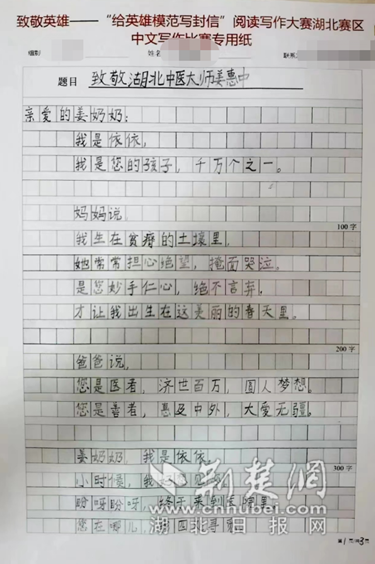 致敬英雄——“给英雄模范写封信”阅读写作大赛湖北赛区
中文写作比赛专用纸
题目 致敬湖北中医大师姜惠中
亲爱的姜奶奶:
我是依依,
我是您的孩子,千万个之一。
妈妈说,
100字
我生在贫瘠的土壤里,
她常常担心绝望,掩面哭泣。
是您妙手仁心,绝不言弃,
才让我出生在这美丽的春天里。
200字
爸爸说,
您是医者,济世百万,圆人梦想。
您是善者,惠及中外,大爱无疆。
姜奶奶,我是依依。
300字
小时候,我
盼呀盼呀,终于来到
您在哪儿,
荆楚网
www.cnhubei.com
湖北日报网
第1页/共3页